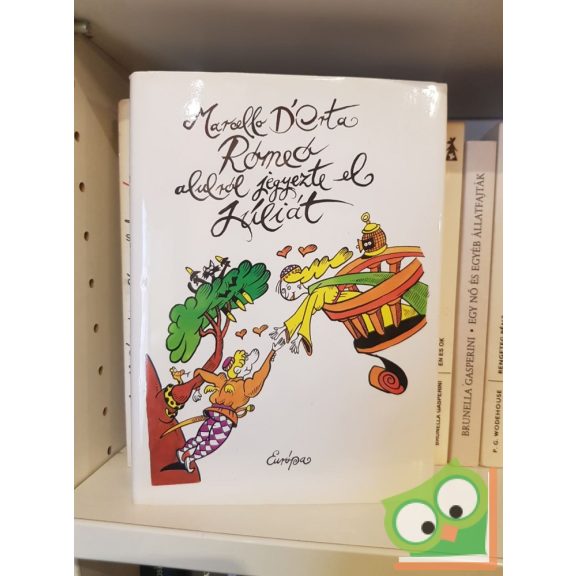 Marcello D'Orta
Rómeó
alulról jegyezte el
Júliát
Európa
BRUNELLA GASPERINI
ÉN ÉS ŐK
BRUNELLA GASPERINI • EGY NŐ ÉS EGYÉB ÁLLATFAJTÁK
P. G. WODEHOUSE